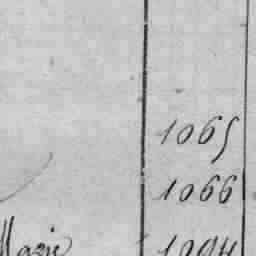 1065
1066
Marie 1094